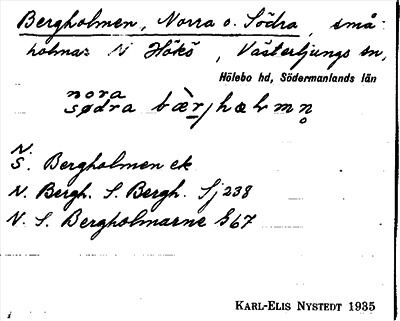 Bergholmen, Norra o. Södra, små-
holmar N Hökö, Västerljungs sn,
Hölebo hd, Södermanlands län
nora
södra bæ̀r/hælmn̥
N.
S. Bergholmen ek
N. Bergh. S. Bergh. Sj 238
N. S. Bergholmarne G 67
KARL-ELIS NYSTEDT 1935